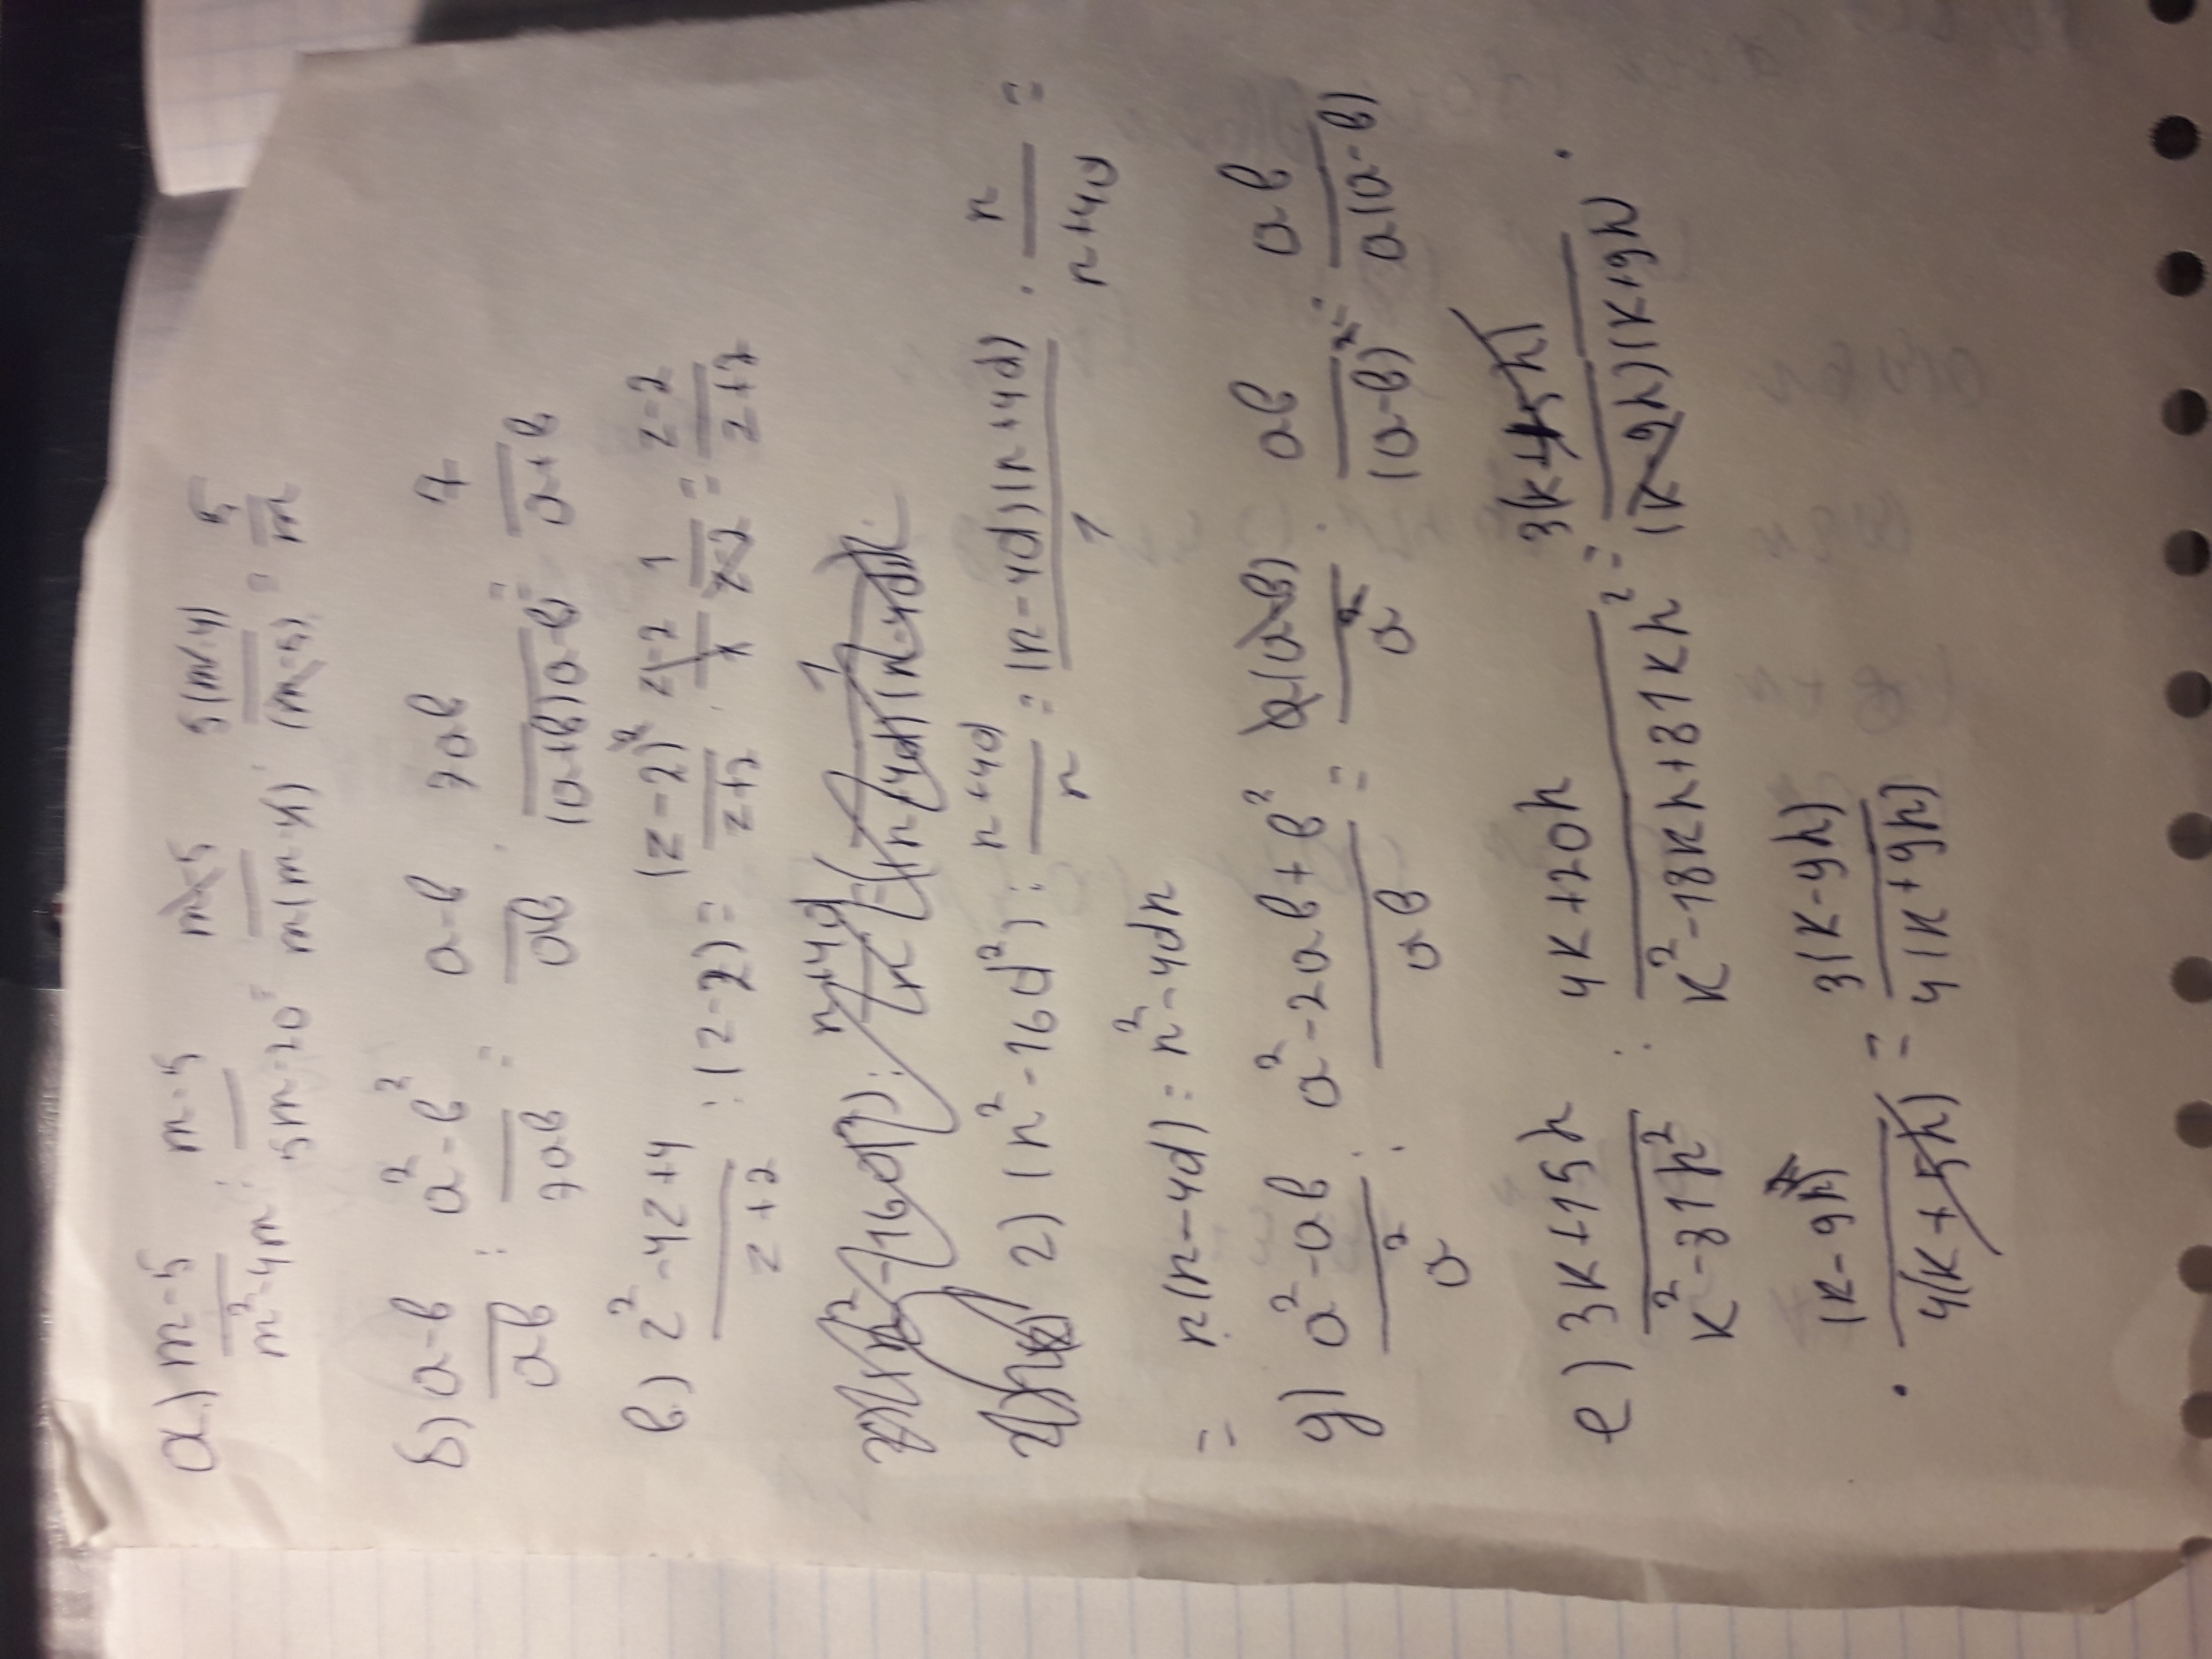 а) m-5/m²-4m : m-5/5m-20 = m-5/m(m-4) · 5(m-4)/(m-5) = 5/m
б) a-b/ab : a²-b²/7ab = a-b/ab · 7ab/(a+b)(a-b) = 7/a+b
в) z²-4z+4/z+2 : (z-2) = (z-2)²/z+2 · 1/z-2 = z-2/z+2
г) (n²-16d²) : n+4d/n = (n-4d)(n+4d)/1 · n/n+4d =
= n(n-4d) = n²-4dn
д) a²-ab/a² : a²-2ab+b²/ab = a(a-b)/a² · ab/(a-b)² = ab/a(a-b)
е) 3k+15h/k²-81h² : 4k+20h/k²-18kh+81kh² = 3(k+5h)/(k-9h)(k+9h) ·
· (k-9h)²/4(k+5h) = 3(k-9h)/4(k+9h)